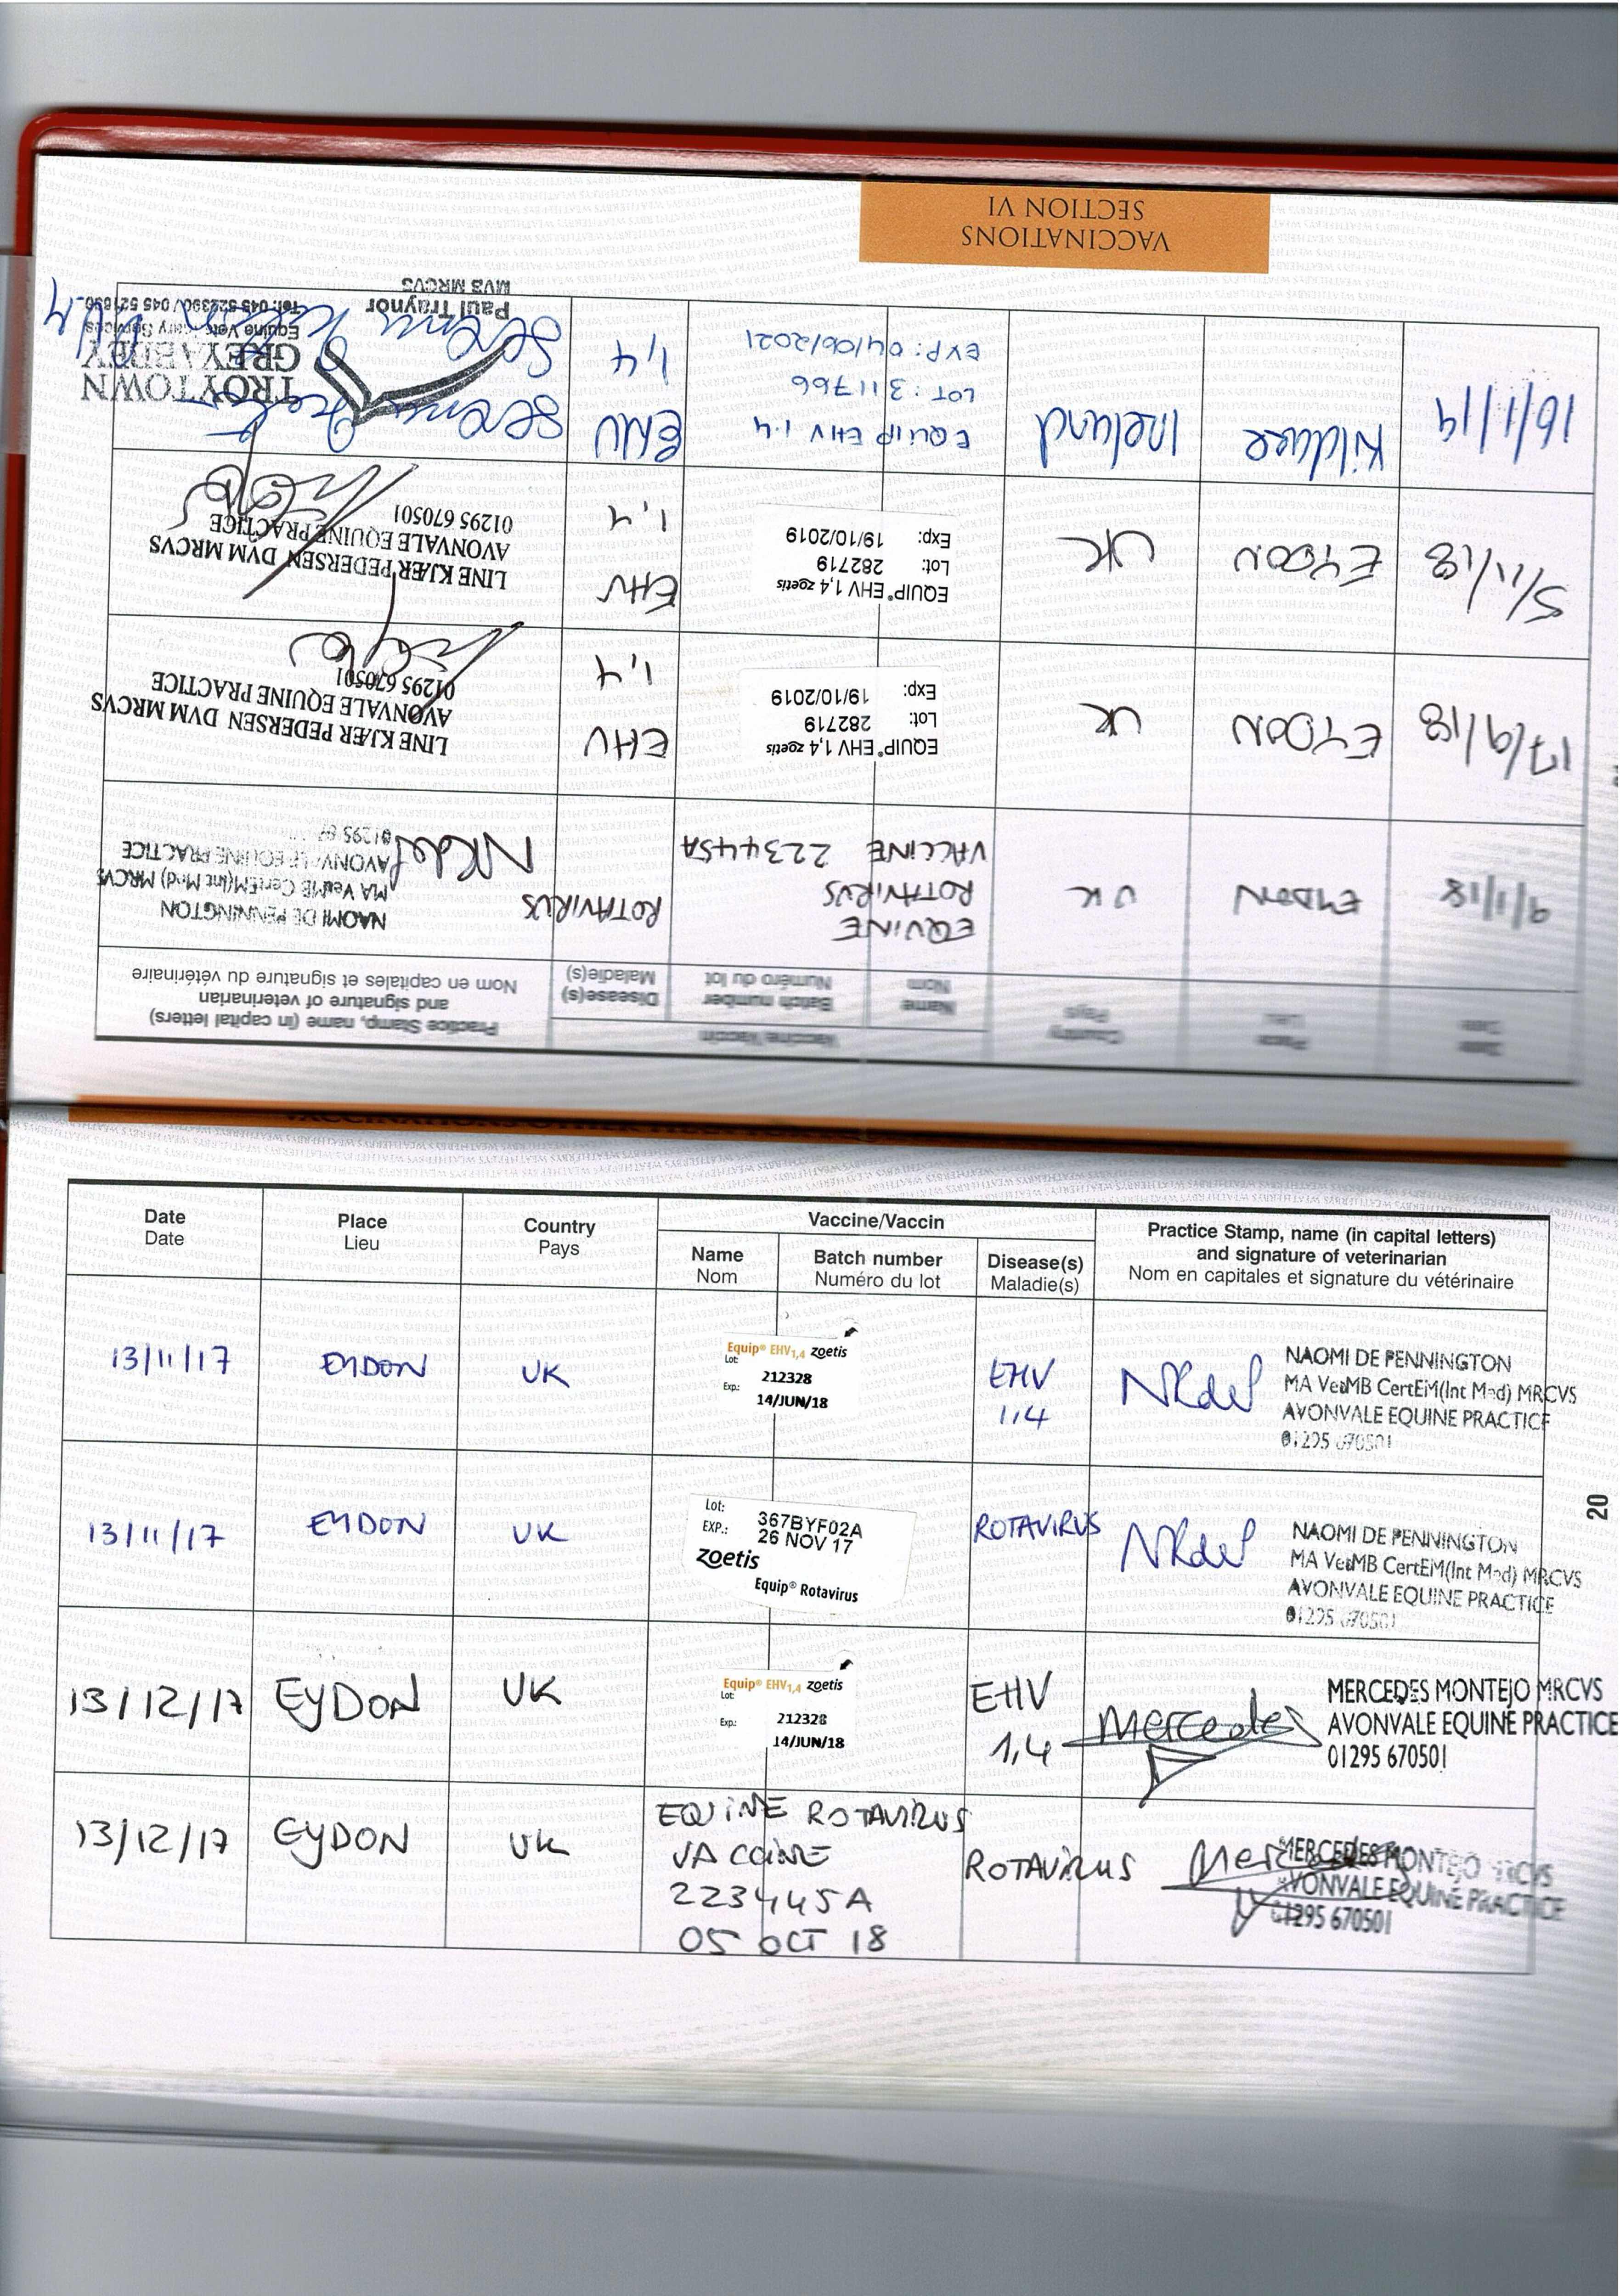 Date
Date
Place
Lieu
Country
Pays
Vaccine/Vaccin
Name
Nom
Batch number
Numéro du lot
Disease(s)
Maladie(s)
Practice Stamp, name (in capital letters)
and signature of veterinarian
Nom en capitales et signature du vétérinaire
13/11/17
EYDON
UK
Equip® EHV1,4 zoetis
Lot:
212328
Exp.:
14/JUN/18
EHV
1,4
NAOMI DE PENNINGTON
MA VetMB CertEM(Int Med) MRCVS
AVONVALE EQUINE PRACTICE
01295 670501
13/11/17
EYDON
UK
Lot: 367BYF02A
EXP.: 26 NOV 17
zoetis
Equip® Rotavirus
ROTAVIRUS
NAOMI DE PENNINGTON
MA VetMB CertEM(Int Med) MRCVS
AVONVALE EQUINE PRACTICE
01295 670501
13/12/17
EYDON
UK
Equip® EHV1,4 zoetis
Lot:
212328
Exp.:
14/JUN/18
EHV
1,4
Mercedes
MERCEDES MONTEJO MRCVS
AVONVALE EQUINE PRACTICE
01295 670501
13/12/17
EYDON
UK
EQUINE ROTAVIRUS
VACCINE
223445A
05 OCT 18
ROTAVIRUS
Mercedes
MERCEDES MONTEJO MRCVS
AVONVALE EQUINE PRACTICE
01295 670501
20
Date
Date
Place
Lieu
Country
Pays
Vaccine/Vaccin
Name
Nom
Batch number
Numéro du lot
Disease(s)
Maladie(s)
Practice Stamp, name (in capital letters)
and signature of veterinarian
Nom en capitales et signature du vétérinaire
9/1/18
EYDON
UK
EQUINE
ROTAVIRUS
VACCINE 223445A
ROTAVIRUS
NAOMI DE PENNINGTON
MA VetMB CertEM(Int Med) MRCVS
AVONVALE EQUINE PRACTICE
01295
17/9/18
EYDON
UK
EQUIP® EHV 1,4 zoetis
Lot: 282719
Exp: 19/10/2019
EHV
1,4
LINE KJÆR PEDERSEN DVM MRCVS
AVONVALE EQUINE PRACTICE
01295 670501
5/11/18
EYDON
UK
EQUIP® EHV 1,4 zoetis
Lot: 282719
Exp: 19/10/2019
EHV
1,4
LINE KJÆR PEDERSEN DVM MRCVS
AVONVALE EQUINE PRACTICE
01295 670501
Kildare
Ireland
EQUIP EHV 1.4
LOT: 311766
EXP: 04/06/2021
EHV
1,4
TROYTOWN
GREYABBEY
Equine Veterinary Services
Paul Traynor
MVB MRCVS
VACCINATIONS
SECTION VI